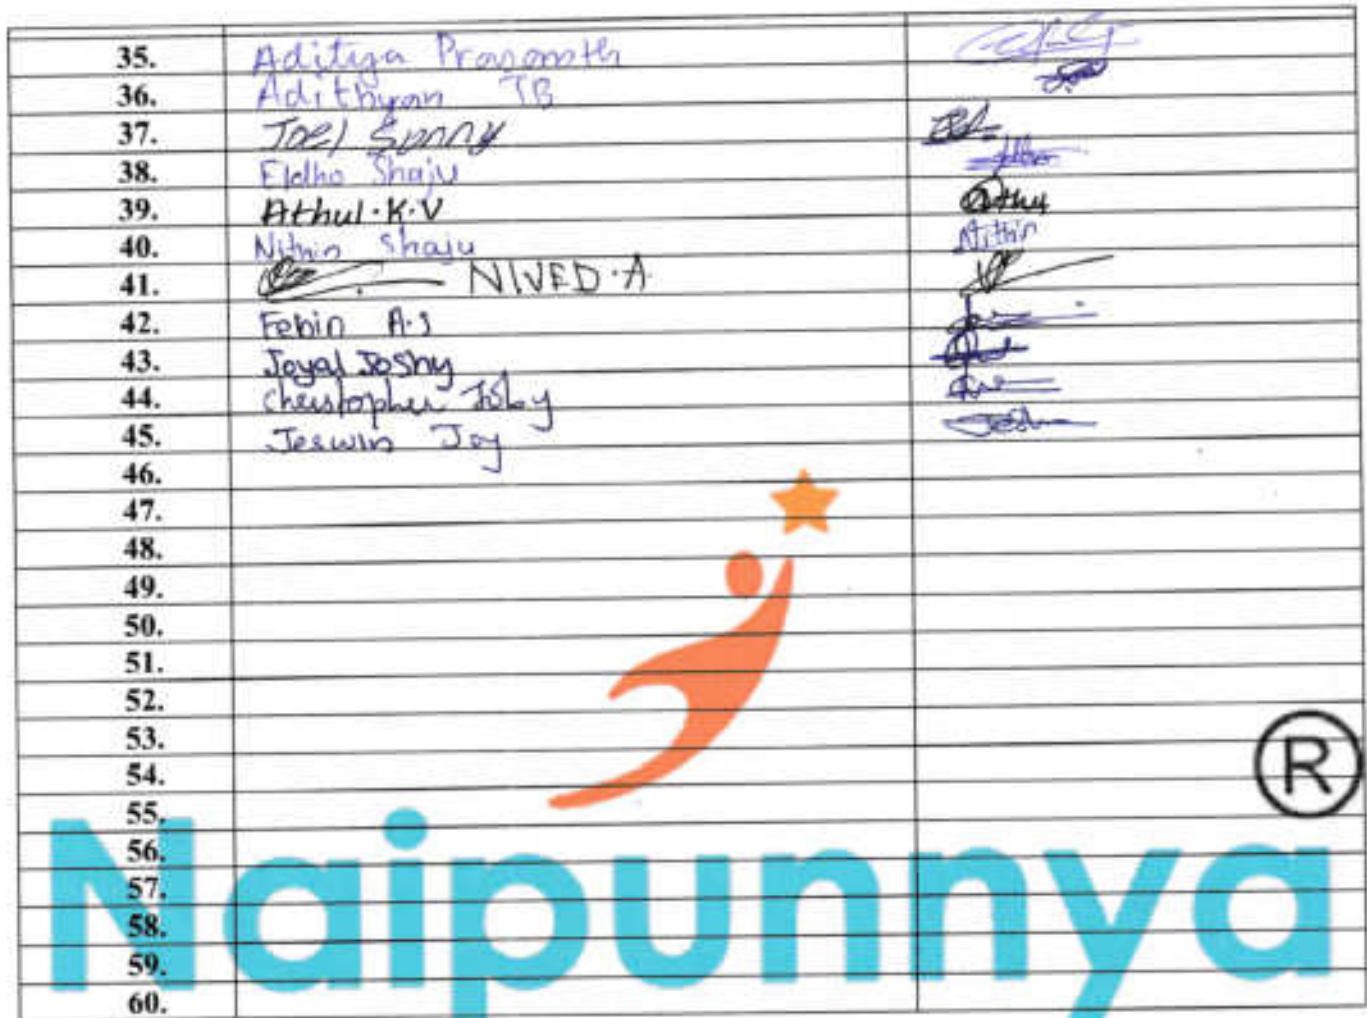 35. Aditya Prasanth
36. Adithyan TB
37. Joel Sunny
38. Eldho Shaju
39. Athul.K.V Athu
40. Nithin Shaju Nithin
41. NIVED.A
42. Febin A.S
43. Joyal Joshy
44. Christopher Joby
45. Jeswin Joy
46.
47.
48.
49.
50.
51.
52.
53.
54.
R
55.
56.
57.
58.
59.
60.
Naipunnya